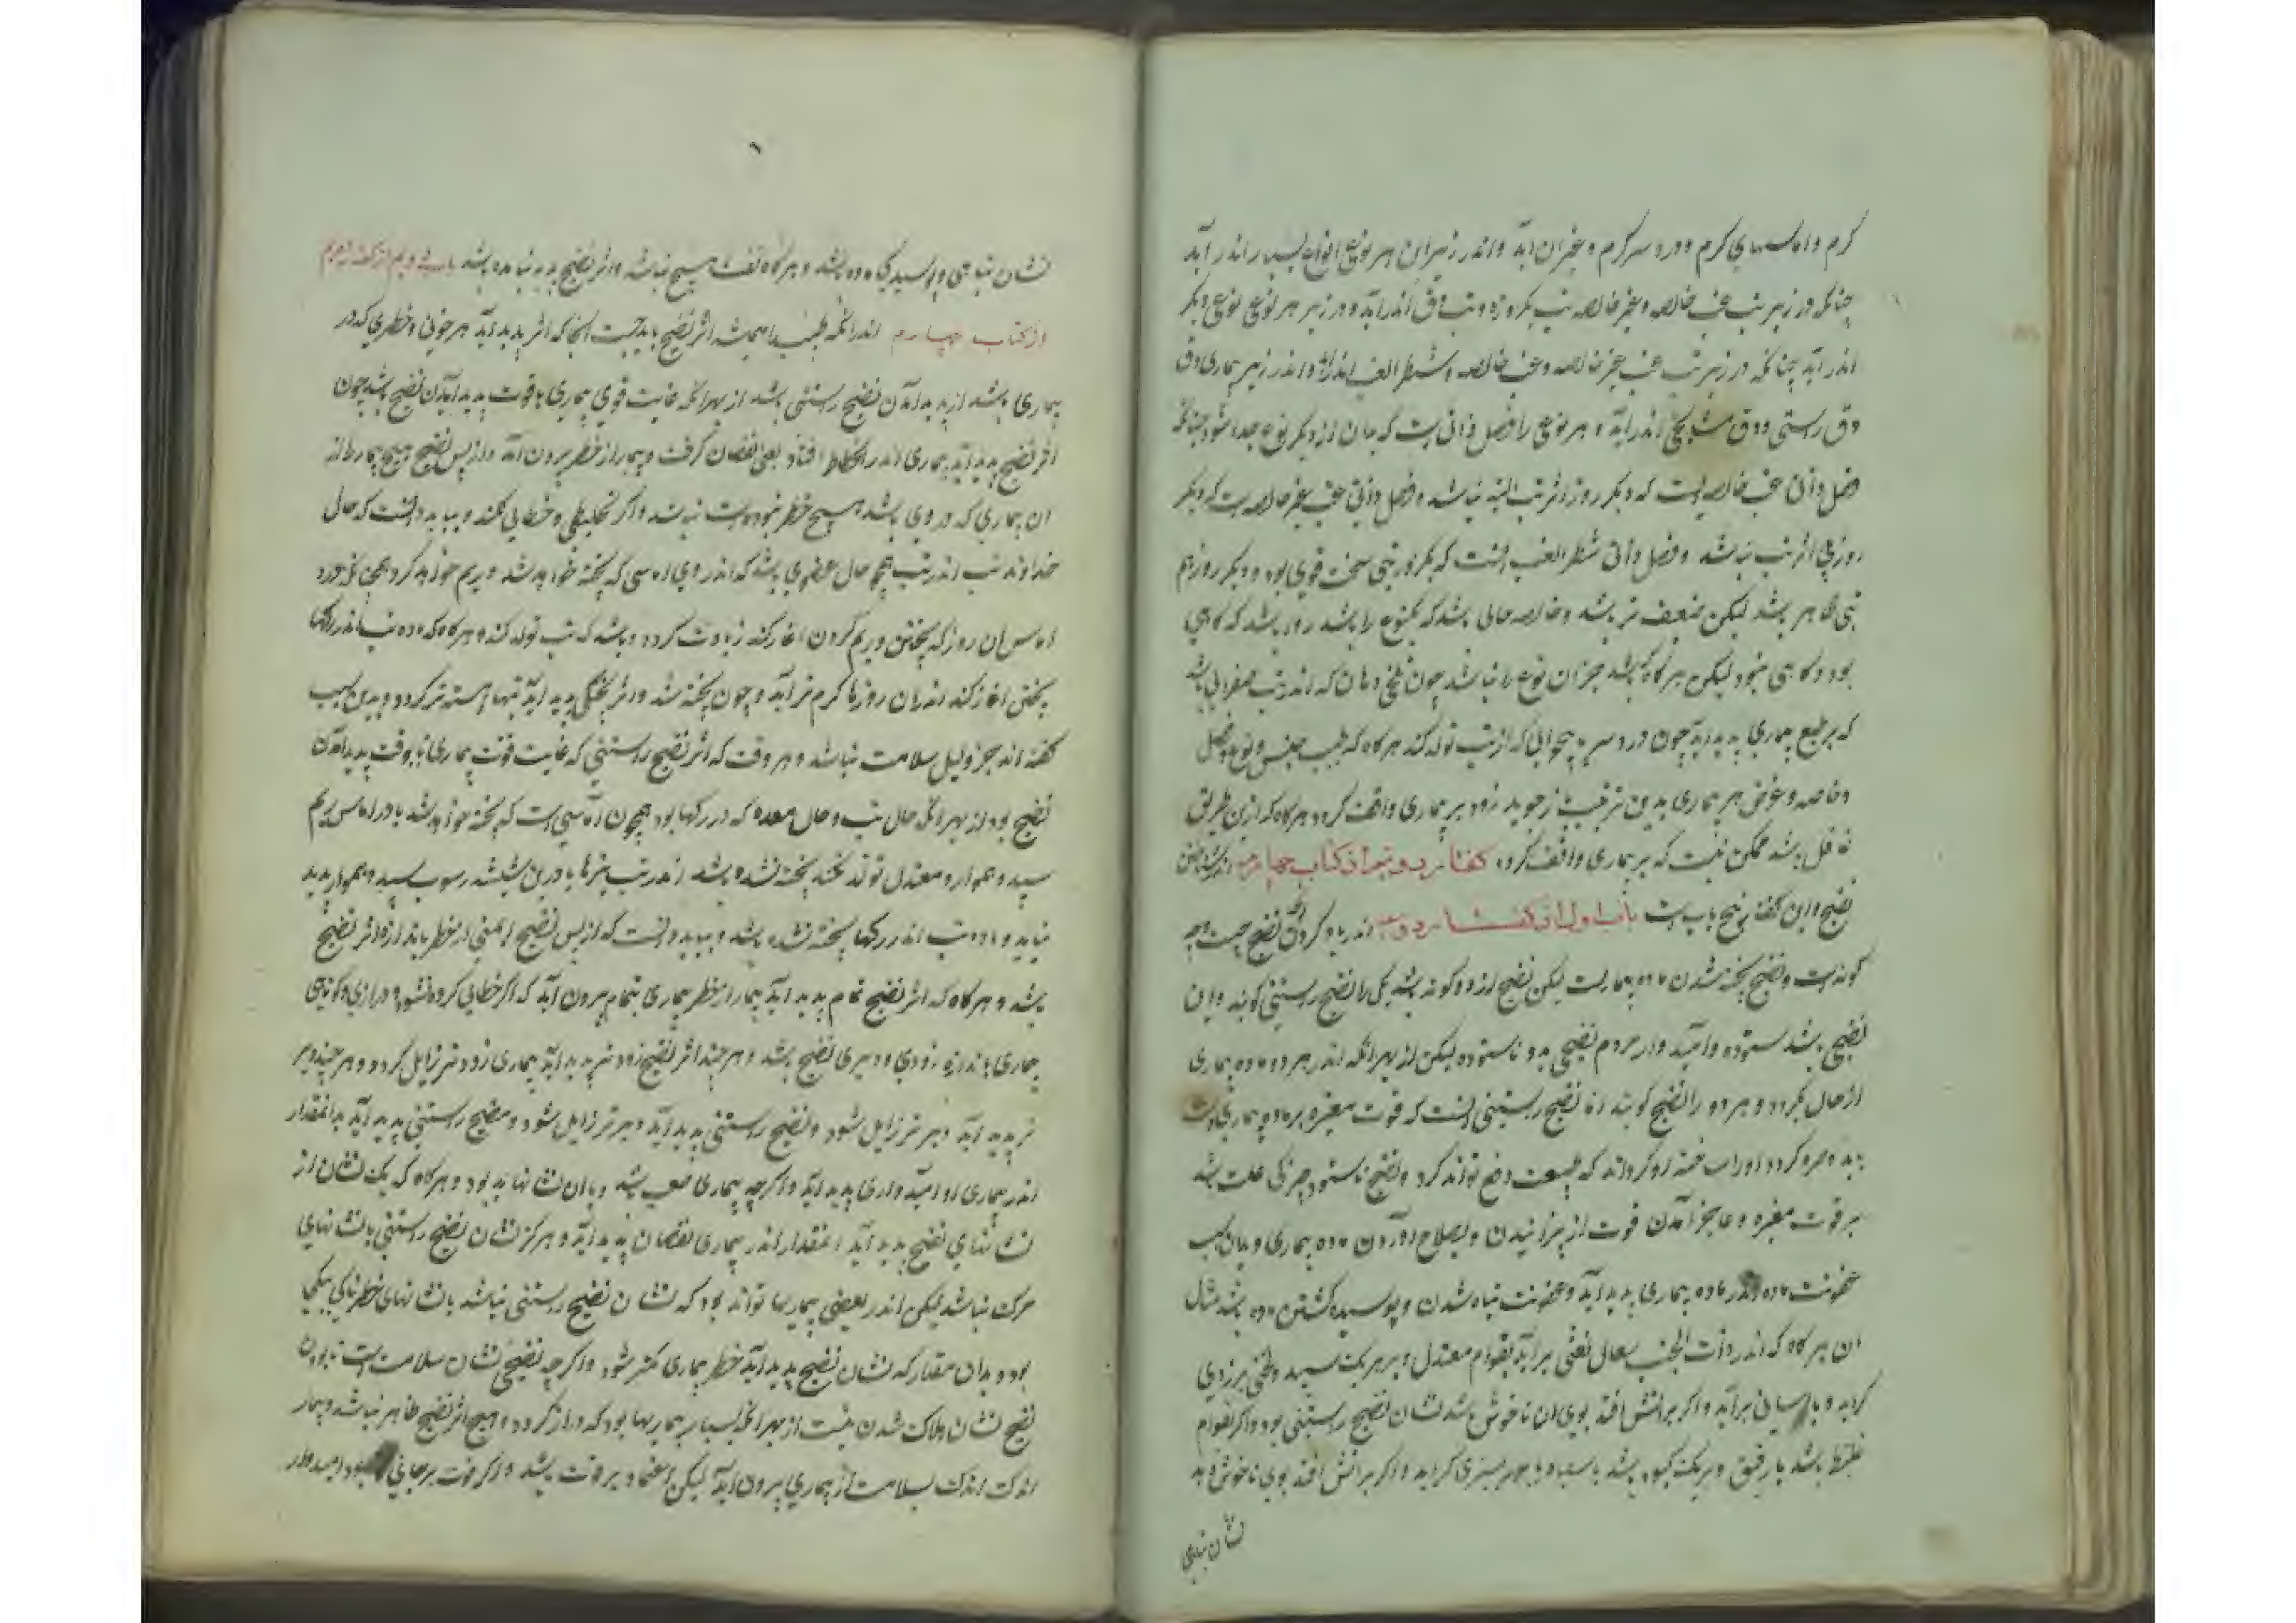 گرم و اماسهای گرم و درد سر گرم و غیر ان اید و اندر زیر این هر نوعی انواع بسیار اندر آید
چنانکه در زیر تب غب خالصه و غیر خالصه تب یکروزه و تب دق اندر آید و در زیر هر نوعی نوعی دیگر
اندر آید چنانکه در زیر تب غب غیر خالصه و غب خالصه و شطر الغب اندر آید و اندر زیر بیماری دق
دق راستی و دق شیخوخی اندر آید و هر نوعی را فصل ذاتی است که بدان از دیگر نوع جدا شود چنانکه
فصل ذاتی غب خالصه است که دیگر روز اثر تب البته نباشد و فصل ذاتی غب غیر خالصه است که دیگر
روز بی اثر تب نباشد و فصل ذاتی شطر الغب انست که یکروز تبی سخت قوی بود و دیگر روز هم
تبی ظاهر باشد لیکن ضعیف تر باشد و خاصه حالی باشد که یکنوع را باشد و روا باشد که گاهی
بود و گاهی نبود لیکن هر گاه که باشد جز ان نوع را نباشد چون تلخی دهان که اندر تب صفرائی باشد
که بر طبع بیماری پدید آید چون درد سر و بیخوابی که از تب تولد کند هر گاه که طبیب جنس و نوع و فصل
و خاصه و عرض هر بیماری بدین ترتیب باز جوید زود بر بیماری واقف گردد هر گاه که ازین طریق
غافل باشد ممکن نیست که بر بیماری واقف گردد گفتار دویم از کتاب چهارم اندر شناختن
نضج و این گفتار پنج باب است باب اول از گفتار دویم اندر یاد کردن انکه نضج چیست و چه
گونه است و نضج پخته شدن ماده بیماریست لیکن نضج از دو گونه باشد یکی را نضج راستینی گویند و این
نضجی باشد ستوده و امیدوار دوم نضجی بد و ناستوده لیکن از بهر انکه اندر هر دو ماده بیماری
از حال بگردد و هر دو را نضج گویند اما نضج راستینی انست که قوت مغیره بر ماده بیماری دست
یابد و چیره گردد و او را پخته گرداند که طبیعت دفع تواند کرد و نضج ناستوده چیرگی علت باشد
بر قوت مغیره و عاجز آمدن قوت از پزانیدن و بصلاح آوردن ماده بیماری و بدان سبب
عفونت ماده اندر ماده بیماری پدید آید و عفونت تباه شدن و پوسیده گشتن ماده باشد مثال
ان هر گاه که اندر ذات الجنب بسعال نفثی بر آید بقوام معتدل و برنگ سپید و لختی بزردی
گراید و باسانی بر آید و اگر بر اتش افتد بوی ان ناخوش باشد نشان نضج راستینی بود و اگر بقوام
غلیظ باشد یا رقیق و برنگ کبود باشد یا سیاه یا بسبزی گراید و اگر بر اتش افتد بوی ناخوش دهد
نشان تباهی
نشان تباهی و پوسیدگی ماده باشد و هر گاه نفث هیچ نباشد و اثر نضج پدید نیامده باشد باب دویم از گفتار دویم
از کتاب چهارم اندر انکه طبیب را همیشه اثر نضج باید جست انجا که اثر پدید آید هر خوفی و خطری که در
بیماری باشد از پدید آمدن نضج راستینی باشد از بهر انکه غایت قوی بیماری تا وقت پدید آمدن نضج باشد چون
اثر نضج پدید آید بیماری اندر انحطاط افتاد یعنی نقصان گرفت و بیمار از خطر بیرون آمد و از پس نضج هیچ بیمار از
ان بیماری که در وی باشد هیچ خطر نبود نباشد و اگر تخلیطی و خطائی نکند و بباید دانست که حال
خداوند تب اندر تب همچو حال عضوی باشد که اندر وی اماسی که پخته خواهد شد و ریم خواهد کرد همچنانکه درد
اماس ان روز که پختن و ریم کردن اغاز کند زیادت گردد و باشد که تب تولد کند و هر گاه که ماده تب اندر رگها
پختن اغاز کند اندران روزها گرم تر آید و چون پخته شد و اثر پختگی پدید اید تبها اهسته تر گردد و بدین سبب
گفته اند جز دلیل سلامت نباشد و هر وقت که اثر نضج راستینی که غایت قوت بیماری تا وقت پدید آمدن
نضج بود از بهر انکه حال تب و حال معده که در رگها بود همچون آماسی است که پخته خواهد شد تا در اماس ریم
سپید و هموار و معتدل تولد نکند پخته نشده باشد اندر تب نیز ها تا درین شیشه رسوب سپید و هموار پدید
نیاید ماده تب اندر رگها پخته نشده باشد و بباید دانست که از پس نضج ایمنی از خطر باندازه اثر نضج
باشد و هر گاه که اثر نضج تمام پدید آید بیمار از خطر بیماری بتمام بیرون آید که اگر خطائی کرده نشود و درازی و کوتاهی
بیماری باندازه زودی و دیری نضج باشد و هر چند اثر نضج زودتر پدید آید بیماری زودتر زایل گردد و هر چند دیر
تر پدید آید دیر تر زایل شود و نضج راستینی پدید آید دیر تر زایل شود و نضج راستینی پدید آید بدانمقدار
اندر بیماری او امید واری پدید آید و اگر چه بیماری صعب باشد و با ان نشانها بد بود و هر گاه که یک نشان از
نشانهای نضج پدید آید انمقدار اندر بیماری نقصان پدید آید و هرگز نشان نضج راستینی با نشانهای
مرگ نباشد لیکن اندر بعضی بیماریها تواند بود که نشان نضج راستینی نباشد با نشانهای خطرناکی بیکی
بود و بدان مقدار که نشان نضج پدید آید خطر بیماری کمتر شود و اگر چه نضج نشان سلامت است نابودن
نضج نشان هلاک شدن نیست از بهر انکه بسیار بیماریها بود که دراز گردد و هیچ اثر نضج ظاهر نباشد و بیمار
اندک اندک بسلامت از بیماری بیرون آید لیکن اعتماد بر قوت باشد و اگر قوت بر جای بود امیدوار